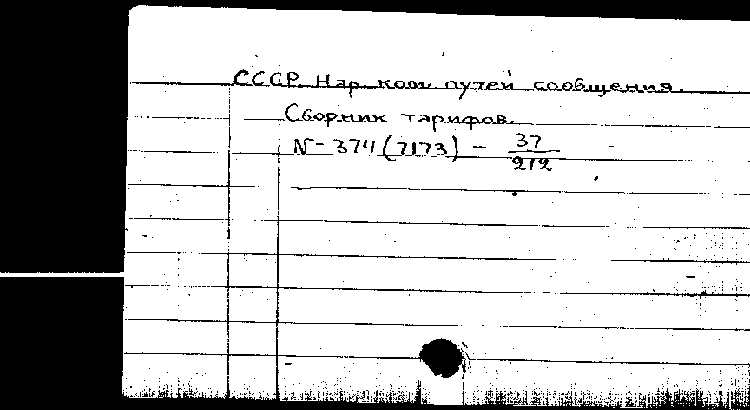 СССР. Нар. ком. путей сообщения.
Сборник тарифов.
N-374 (7173) - 37/212